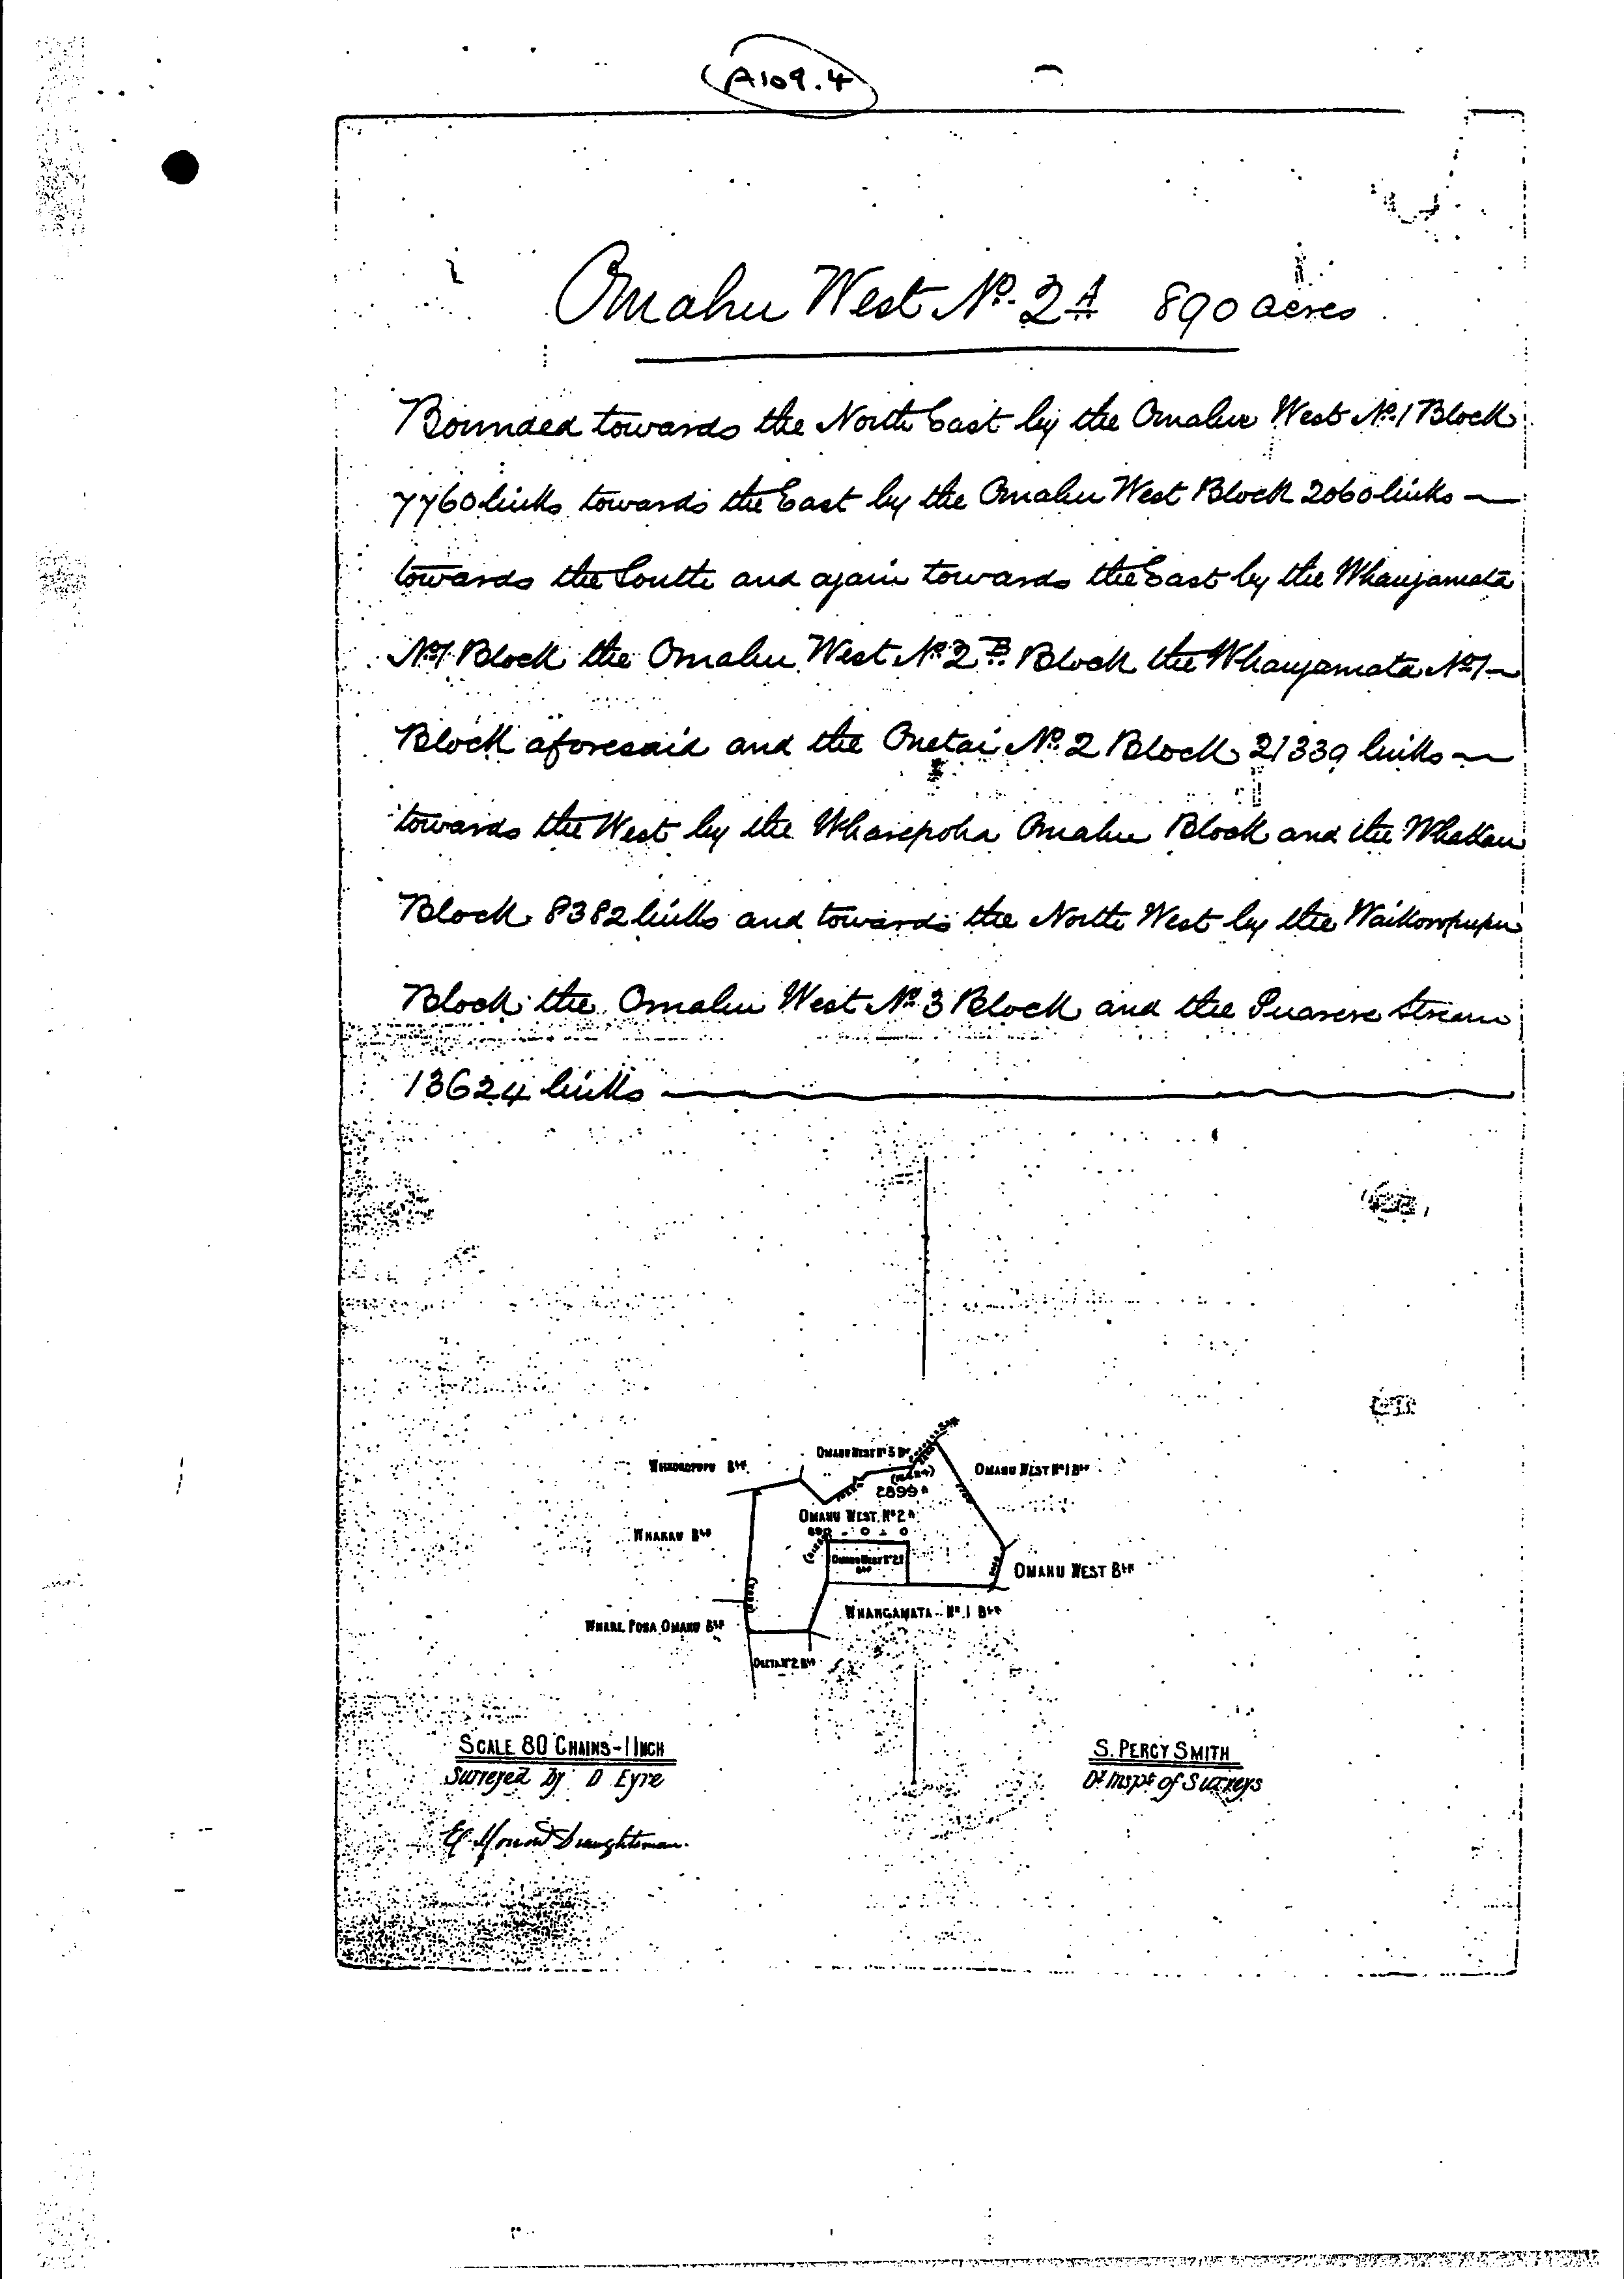 A109.4
Omahu West No. 2A 890 acres
Bounded towards the North East by the Omahu West No. 1 Block
7760 links towards the East by the Omahu West Block 2060 links —
towards the South and again towards the East by the Whangamata
No. 1 Block the Omahu West No. 2B Block the Whangamata No. 1 —
Block aforesaid and the Onetai No. 2 Block 21339 links —
towards the West by the Wharepoha Omahu Block and the Whakau
Block 8382 links and towards the North West by the Waikoropupu
Block the Omahu West No. 3 Block and the Puarere Stream
13624 links
OMAHU WEST No 3 Bk
WAIKOROPUPU Blk
OMAHU WEST No 1 Blk
(13624)
2899A
OMAHU WEST No 2A
890 . 0 . 0
WHAKAU Blk
OMAHU WEST Blk
WHANGAMATA No. 1 Blk
WHARE POHA OMAHU Blk
SCALE 80 CHAINS - 1 INCH
Surveyed by D Eyre
Draughtsman.
S. PERCY SMITH
Dt Inspt of Surveys